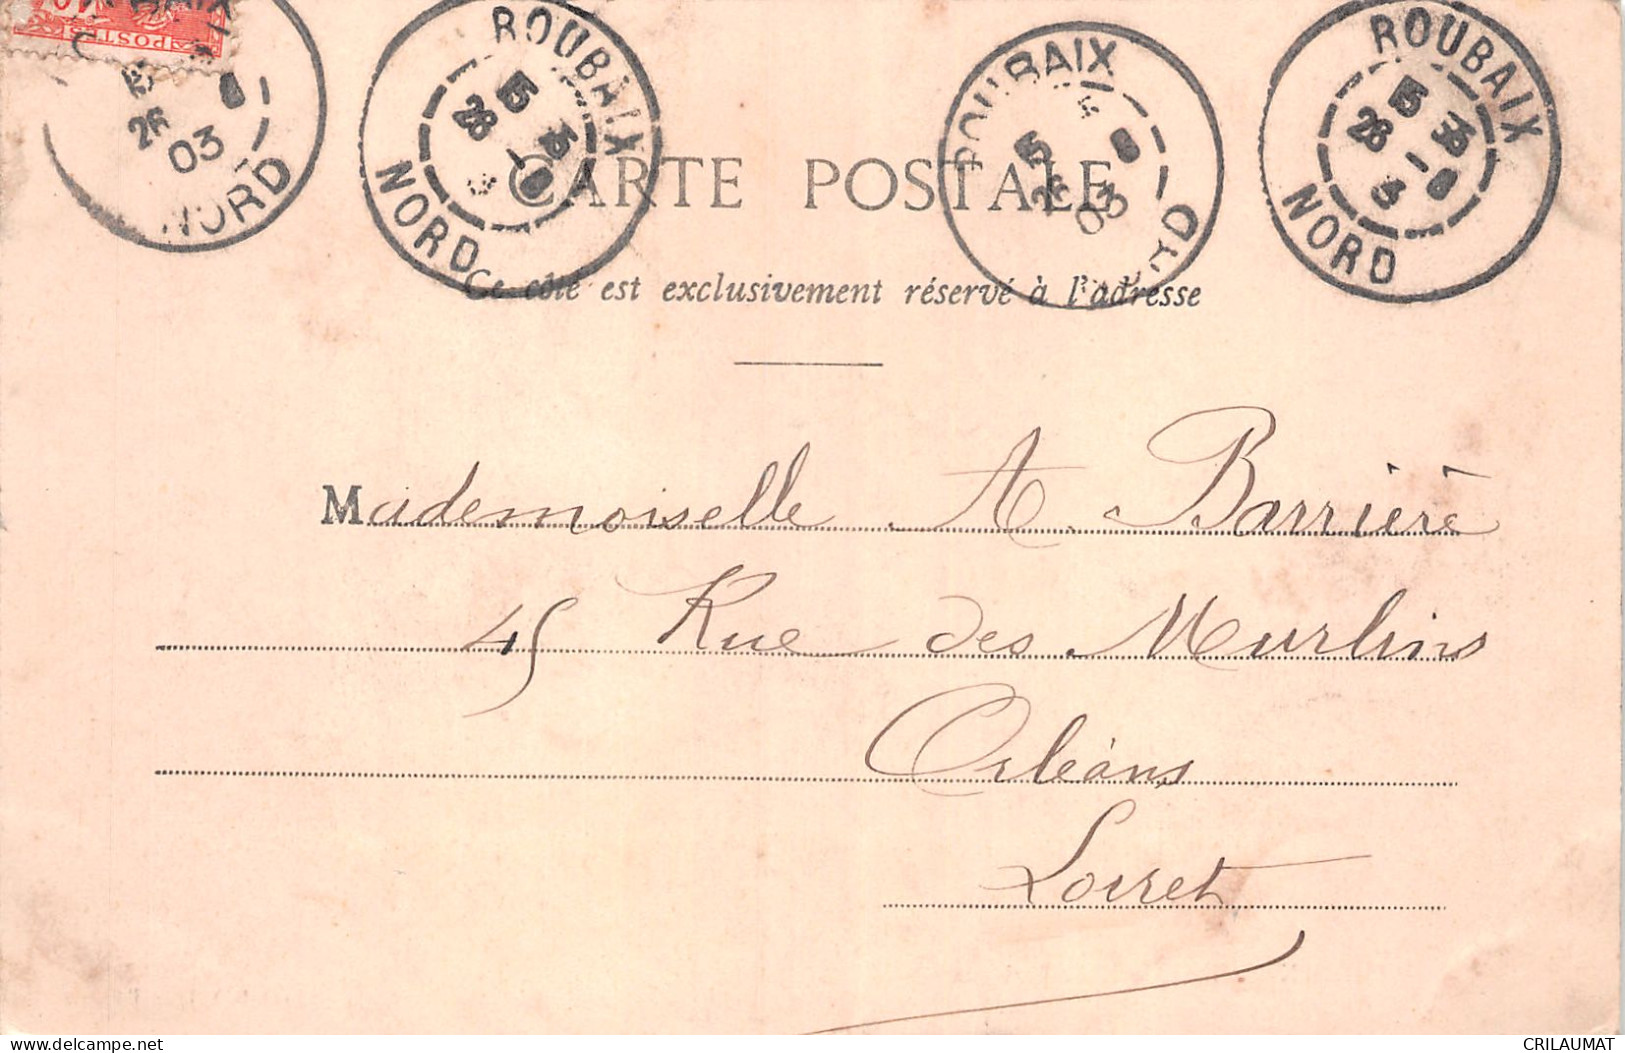 POSTES
ROUBAIX
NORD
26
03
ROUBAIX
NORD
26
3
ROUBAIX
26
03
ROUBAIX
NORD
26
3
CARTE POSTALE
Ce côté est exclusivement réservé à l'adresse
Mademoiselle A. Barrière
45 Rue des Murlins
Orléans
Loiret
delcampe.net
CRILAUMAT